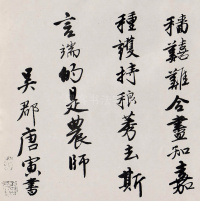 穡囏難今盡知嘉
種護持稂莠去斯
言端的是農師
吴郡唐寅書